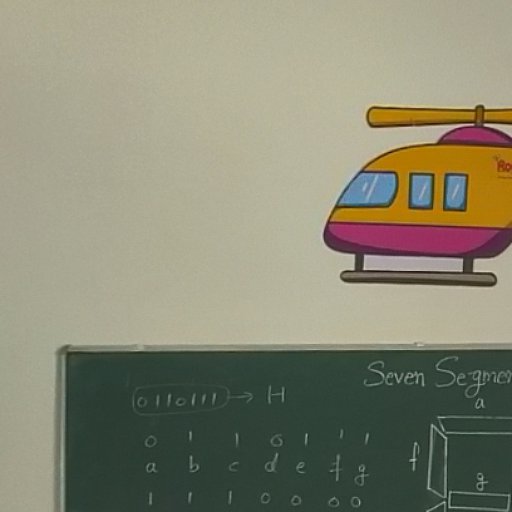 Seven Segmen
0110111 → H
a
0 1 1 0 1 1 1
a b c d e f g
f
g
1 1 1 0 0 0 0